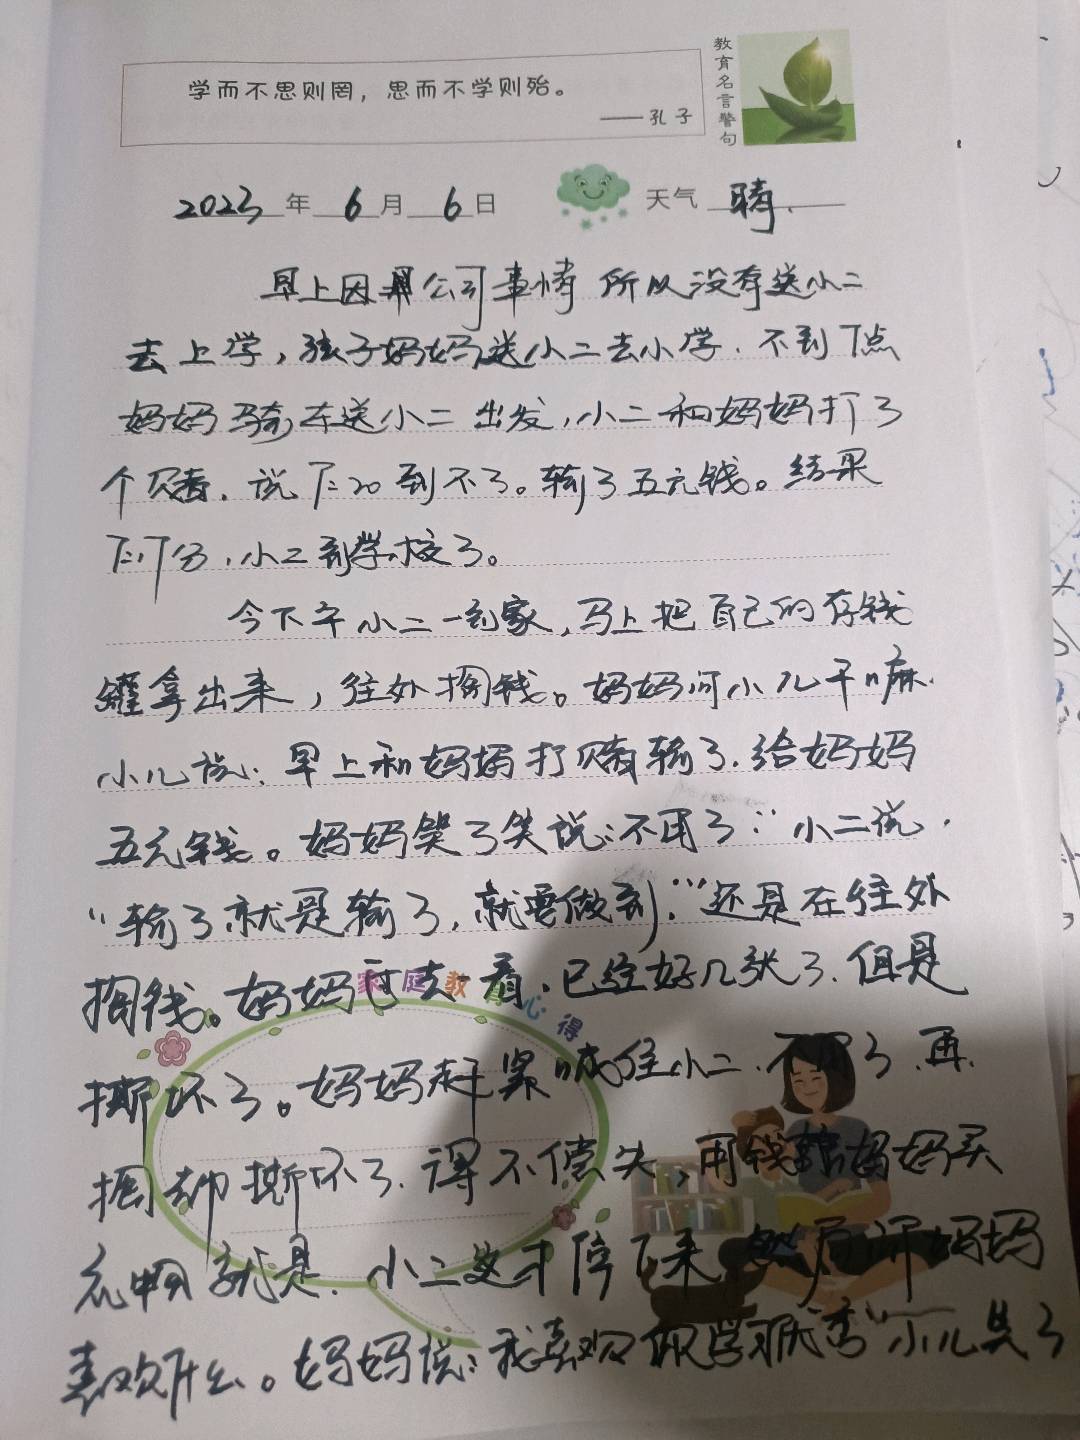 学而不思则罔，思而不学则殆。
——孔子
教育名言警句
2023年6月6日 天气 晴.
早上因 公司事情 所以没有送小二
去上学，孩子妈妈送小二去小学.不到7点
妈妈骑车送小二出发，小二和妈妈打了
个赌.说7:20到不了。输了五元钱。结果
7:17分，小二到学校了。
今下午小二一到家，马上把自己的存钱
罐拿出来，往外掏钱。妈妈问小儿干嘛.
小儿说：早上和妈妈打赌输了.给妈妈
五元钱。妈妈笑了笑说：不用了 小二说，
“输了就是输了，就要做到.”还是在往外
掏钱。妈妈过去看.已经好几张了.但是
撕坏了。妈妈赶紧喊住小二.不用了.再
掏都撕坏了.得不偿失，用钱 妈妈买
就是.小二这才停下来，然后 妈妈
喜欢什么。妈妈说：我喜欢你学习优秀 小儿笑了
家庭教育心得